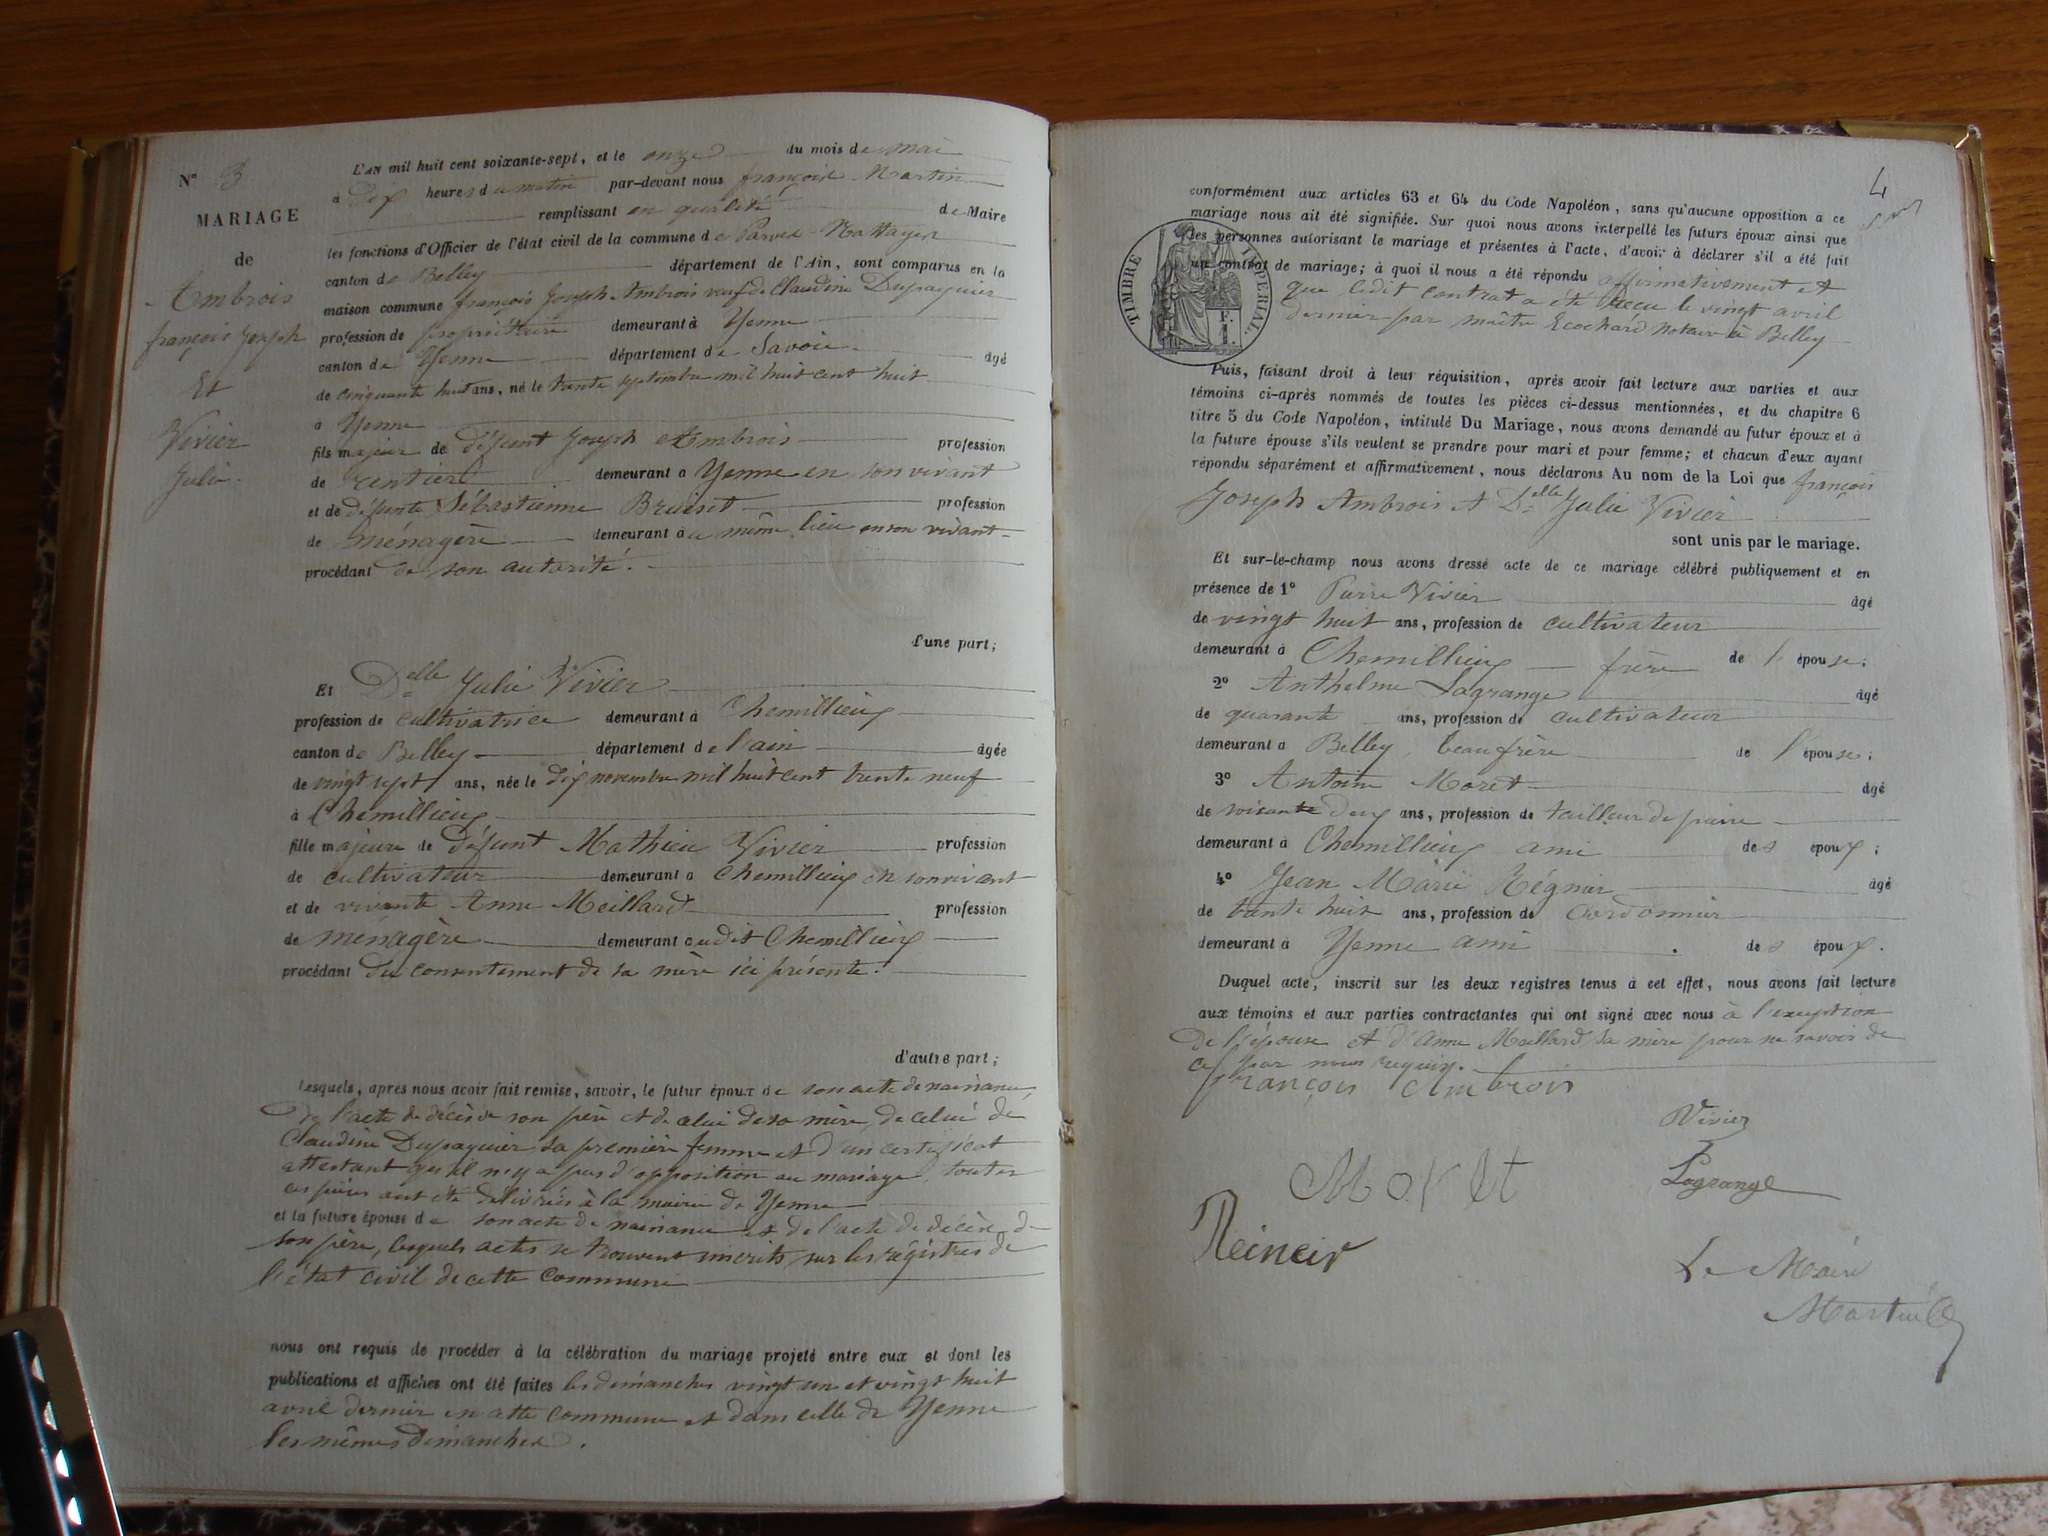 N° 3
MARIAGE
de
Ambrois
françois Joseph
Et
Vivier
Julie.
L'AN mil huit cent soixante-sept, et le onze du mois de mai
à dix heures du matin par-devant nous françois Martin
remplissant en qualité de Maire
les fonctions d'Officier de l'état civil de la commune de Parves-Nattages
canton de Belley département de l'Ain, sont comparus en la
maison commune françois Joseph Ambrois veuf de Claudine Dupasquier
profession de propriétaire demeurant à Yenne
canton de Yenne département de Savoie âgé
de cinquante huit ans, né le trente septembre mil huit cent huit
à Yenne
fils majeur de défunt Joseph Ambrois profession
de rentier demeurant à Yenne en son vivant
et de défunte Sébastienne profession
de ménagère demeurant au même lieu en son vivant
procédant de son autorité.
d'une part;
Et Delle Julie Vivier
profession de cultivatrice demeurant à Chemillieu
canton de Belley département de l'ain âgée
de vingt sept ans, née le dix novembre mil huit cent trente neuf
à Chemillieu
fille majeure de défunt Mathieu Vivier profession
de cultivateur demeurant à Chemillieu en son vivant
et de vivante Anne Meillard profession
de ménagère demeurant audit Chemillieu
procédant du consentement de sa mère ici présente.
d'autre part;
Lesquels, après nous avoir fait remise, savoir, le futur époux de son acte de naissance,
de l'acte de décès de son père et de celui de sa mère, de celui de
Claudine Dupasquier sa première femme et d'un certificat
attestant qu'il n'y a pas d'opposition au mariage, toutes
ces pièces ont été délivrées à la mairie de Yenne
et la future épouse de son acte de naissance et de l'acte de décès de
son père, lesquels actes se trouvent inscrits sur les régistres de
l'état civil de cette commune
nous ont requis de procéder à la célébration du mariage projeté entre eux et dont les
publications et affiches ont été faites les dimanches vingt un et vingt huit
avril dernier en cette commune et dans celle de Yenne
les mêmes dimanches.
4
conformément aux articles 63 et 64 du Code Napoléon, sans qu'aucune opposition à ce
mariage nous ait été signifiée. Sur quoi nous avons interpellé les futurs époux ainsi que
les personnes autorisant le mariage et présentes à l'acte, d'avoir à déclarer s'il a été fait
un contrat de mariage; à quoi il nous a été répondu affirmativement et
que ledit contrat a été reçu le vingt avril
dernier par maître Ecochard notaire à Belley
TIMBRE IMPÉRIAL.
Puis, faisant droit à leur réquisition, après avoir fait lecture aux parties et aux
témoins ci-après nommés de toutes les pièces ci-dessus mentionnées, et du chapitre 6
titre 5 du Code Napoléon, intitulé Du Mariage, nous avons demandé au futur époux et à
la future épouse s'ils veulent se prendre pour mari et pour femme; et chacun d'eux ayant
répondu séparément et affirmativement, nous déclarons Au nom de la Loi que françois
Joseph Ambrois et Delle Julie Vivier
sont unis par le mariage.
Et sur-le-champ nous avons dressé acte de ce mariage célébré publiquement et en
présence de 1° Pierre Vivier âgé
de vingt huit ans, profession de cultivateur
demeurant à Chemillieu frère de l'épouse;
2° Anthelme Lagrange âgé
de quarante ans, profession de cultivateur
demeurant à Belley, beaufrère de l'épouse;
3° Antoine Moret âgé
de soixante deux ans, profession de tailleur de pierre
demeurant à Chemillieu ami des époux;
4° Jean Marie Régnier âgé
de trente huit ans, profession de cordonnier
demeurant à Yenne ami des époux.
Duquel acte, inscrit sur les deux registres tenus à cet effet, nous avons fait lecture
aux témoins et aux parties contractantes qui ont signé avec nous à l'exception
de l'épouse et d'Anne Meillard sa mère pour ne savoir de
ce par nous requis.
François Ambrois
Vivier
Moret
Lagrange
Reineir
Le Maire
Martin